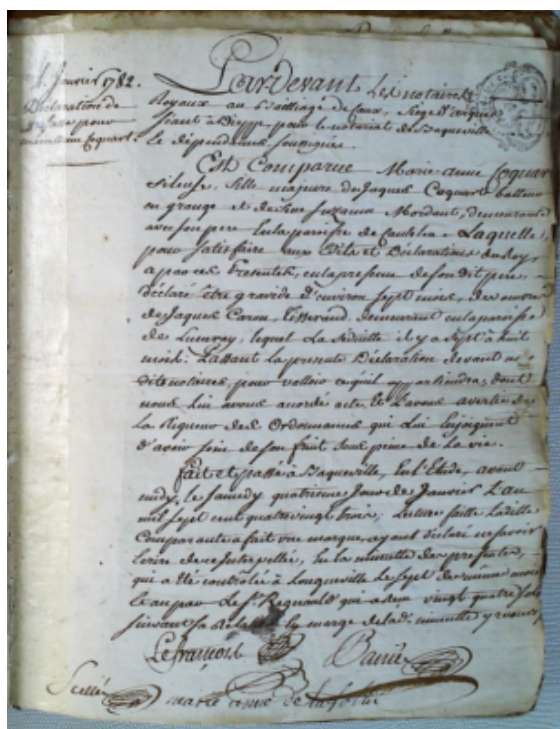 4. Janvier 1782.
Déclaration de
pour
Coquart.
Pardevant Les notaires
Royaux au Bailliage de Caux, Siège d'arques
séant à Dieppe, pour le notariat de Baqueville
le dépendances soussignés
Est Comparue Marie anne Coquart
fileuse, fille majeure de Jaques Coquart batteur
en grange et de feue Suzanne Mordant, demeurante
avec son pere en la paroisse de Laquelle,
pour satisfaire aux Edits et Déclarations du Roy,
a par ces Presentes, en la presence de son dit pere,
déclaré être gravide d'environ sept mois, des œuvres
de Jaques Caron, Tisserand, demeurant en la paroisse
de Luneray, lequel La séduitte il y a sept à huit
mois. Passant la presente Déclaration devant nos
dits notaires, pour valloir ce qu'il appartiendra, dont
nous lui avons accordé acte Et L'avons avertie de
la Rigueur des Ordonnances qui Lui Enjoignent
d'avoir soin de son fruit sous peine de la vie.
fait et passé à Baqueville, En l'Etude, avant
midy, le samedy quatrieme Jour de Janvier L'an
mil sept cent quatre vingt trois; Lecture faitte Laditte
Comparante a fait une marque, ayant déclaré ne savoir
Ecrire de ce Interpellée, sur la minutte des presentes,
qui a été controlée à Longueville le sept du même mois
et an par Le Sr. Regnault qui a reçu vingt quatre sols
suivant sa Relation En marge de lad. minutte y
Lefrançois
Scellé
marie anne de